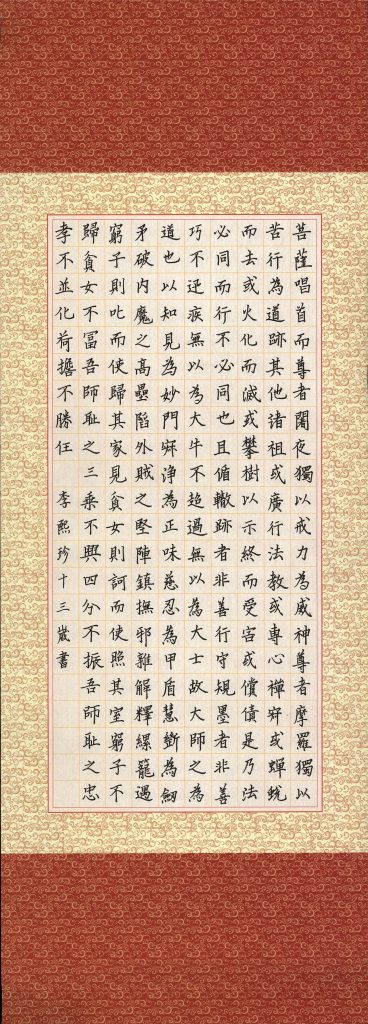 菩薩唱首而尊者闍夜獨以戒力為威神尊者摩羅獨以
苦行為道跡其他諸祖或廣行法教或專心禪寂或蟬蛻
而去或火化而滅或攀樹以示終而受害或償債是乃法
必同而行不必同也且循轍跡者非善行守規墨者非善
巧不迅疾無以為大牛不超過無以為大士故大師之為
道也以知見為妙門寂淨為正味慈忍為甲盾慧斷為劒
矛破內魔之高壘陷外賊之堅陣鎮撫邪雜解釋縲籠遇
窮子則叱而使歸其家見貧女則訶而使照其室窮子不
歸貧女不冨吾師恥之三乘不興四分不振吾師恥之忠
孝不並化荷擔不勝任 李熙珍十三歲書